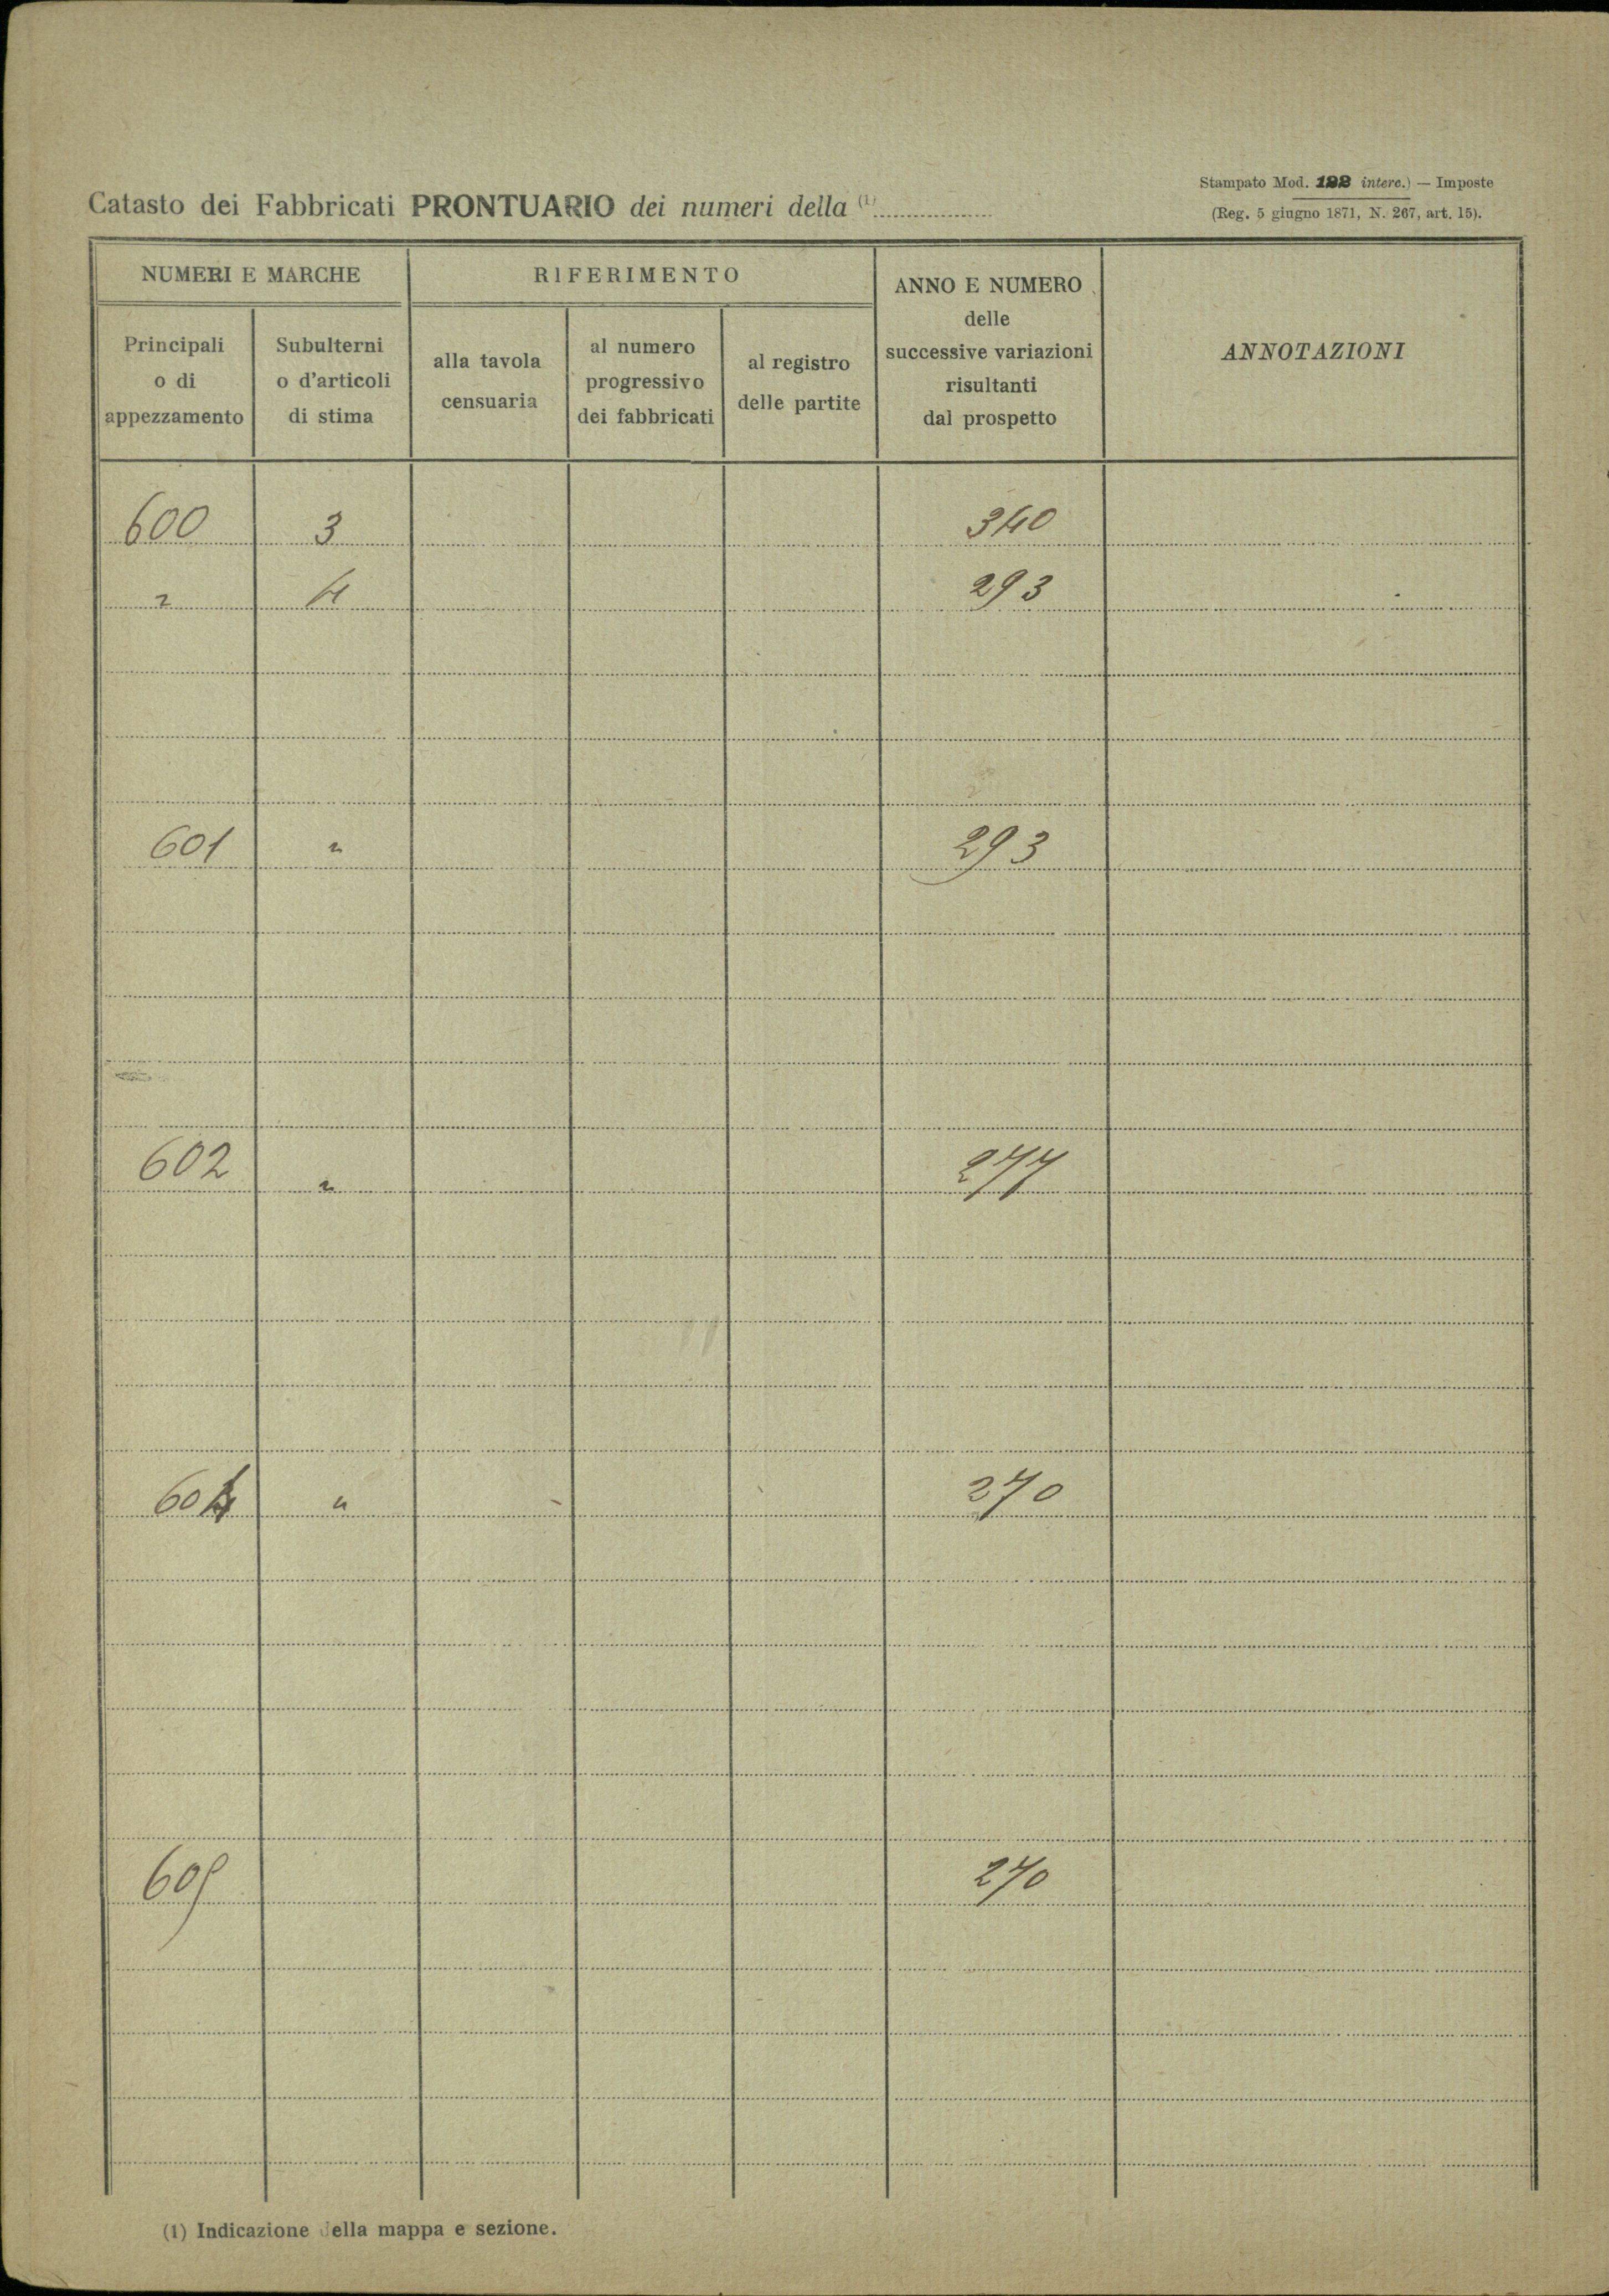 Stampato Mod. 122 interc.) — Imposte
(Reg. 5 giugno 1871, N. 267, art. 15).
Catasto dei Fabbricati PRONTUARIO dei numeri della (1)
NUMERI E MARCHE
Principali
o di
appezzamento
Subulterni
o d'articoli
di stima
RIFERIMENTO
alla tavola
censuaria
al numero
progressivo
dei fabbricati
al registro
delle partite
ANNO E NUMERO
delle
successive variazioni
risultanti
dal prospetto
ANNOTAZIONI
600 3 340
" 4 293
601 " 293
602 " 277
604 " 270
605 270
(1) Indicazione della mappa e sezione.